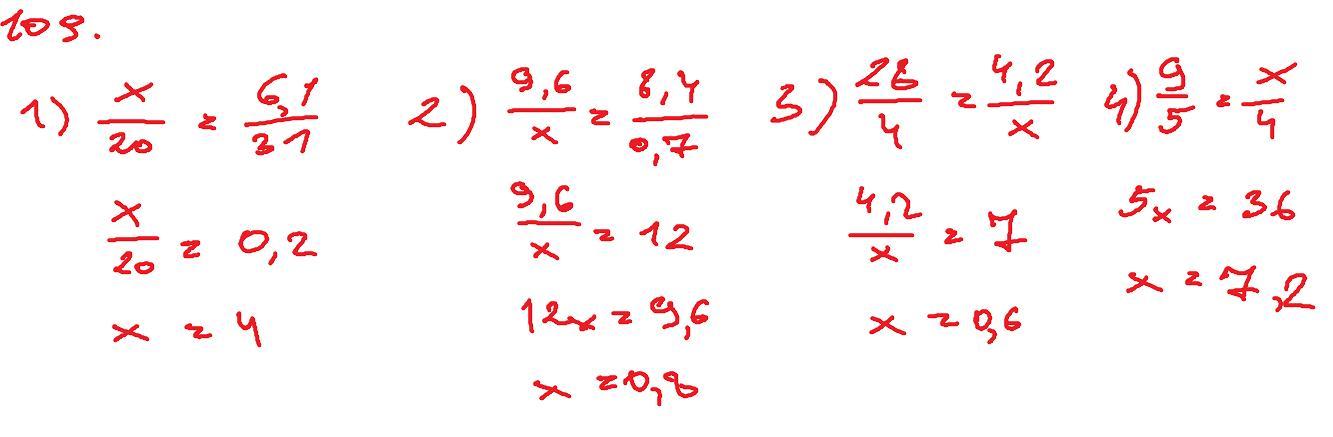 109.
1) x/20 = 6,1/31
x/20 = 0,2
x = 4
2) 9,6/x = 8,4/0,7
9,6/x = 12
12x = 9,6
x = 0,8
3) 28/4 = 4,2/x
4,2/x = 7
x = 0,6
4) 9/5 = x/4
5x = 36
x = 7,2